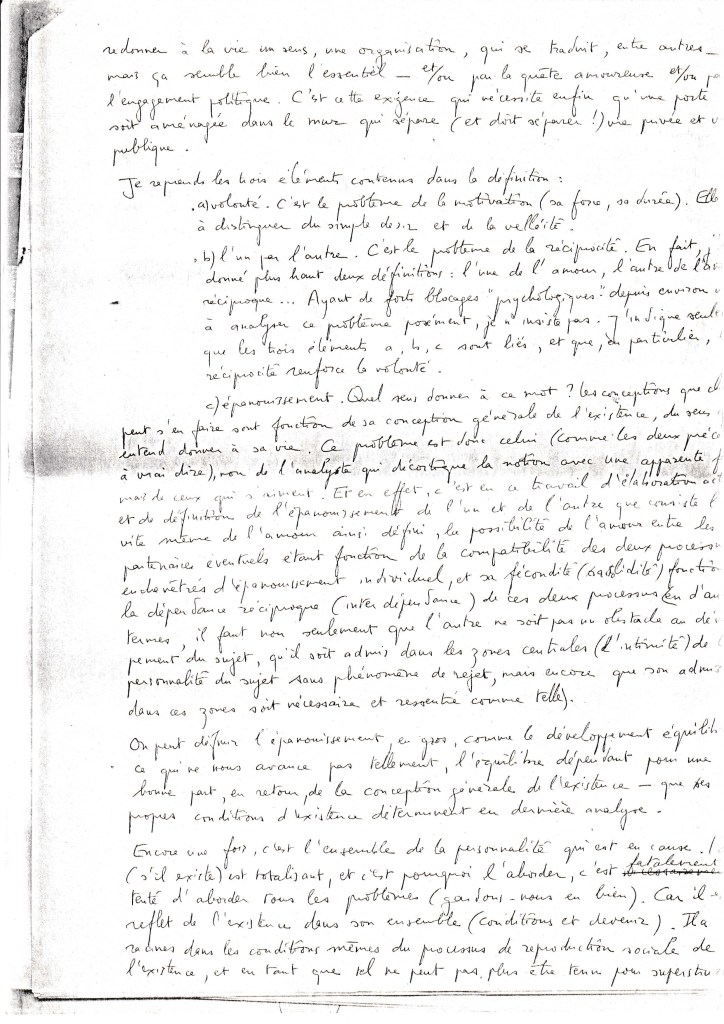 redonner à la vie un sens, une organisation, qui se traduit, entre autres —
mais ça semble bien l'essentiel — et/ou par la quête amoureuse et/ou p
l'engagement politique. C'est cette exigence qui nécessite enfin qu'une porte
soit aménagée dans le mur qui sépare (et doit séparer!) vie privée et v
publique.
Je reprends les trois éléments contenus dans la définition :
a) volonté. C'est le problème de la motivation (sa force, sa durée). Elle
à distinguer du simple désir et de la velléité.
b) l'un par l'autre. C'est le problème de la réciprocité. En fait,
donné plus haut deux définitions : l'une de l'amour, l'autre de l'
réciproque... Ayant de forts blocages "psychologiques" depuis environ
à analyser ce problème posément, je n'insiste pas. J'indique seul
que les trois éléments a, b, c sont liés, et que, en particulier,
réciprocité renforce la volonté.
c) épanouissement. Quel sens donner à ce mot ? Les conceptions que
peut s'en faire sont fonction de sa conception générale de l'existence, du sens
entend donner à sa vie. Ce problème est donc celui (comme les deux préc
à vrai dire), non de l'analyste qui décortique la notion avec une apparente
mais de ceux qui s'aiment. Et en effet, c'est en ce travail d'élaboration
et de définition de l'épanouissement de l'un et de l'autre que consiste l
vité même de l'amour ainsi défini, la possibilité de l'amour entre les
partenaires éventuels étant fonction de la compatibilité des deux process
enchevêtrés d'épanouissement individuel, et sa fécondité (sa solidité) fonction
la dépendance réciproque (interdépendance) de ces deux processus (en d'au
termes il faut non seulement que l'autre ne soit pas un obstacle au dé
pement du sujet, qu'il soit admis dans les zones centrales (l'intimité) de
personnalité du sujet sans phénomène de rejet, mais encore que son admi
dans ces zones soit nécessaire et ressentie comme telle).
On peut définir l'épanouissement, en gros, comme le développement équilib
ce qui ne nous avance pas tellement, l'équilibre dépendant pour une
bonne part, en retour, de la conception générale de l'existence — que ses
propres conditions d'existence déterminent en dernière analyse.
Encore une fois, c'est l'ensemble de la personnalité qui est en cause.
(s'il existe) est totalisant, et c'est pourquoi l'aborder, c'est fatalement
tenté d'aborder tous les problèmes (gardons-nous en bien). Car il
reflet de l'existence dans son ensemble (conditions et devenir). Il a
racines dans les conditions mêmes du processus de reproduction sociale de
l'existence, et en tant que tel ne peut pas plus être tenu pour superstru